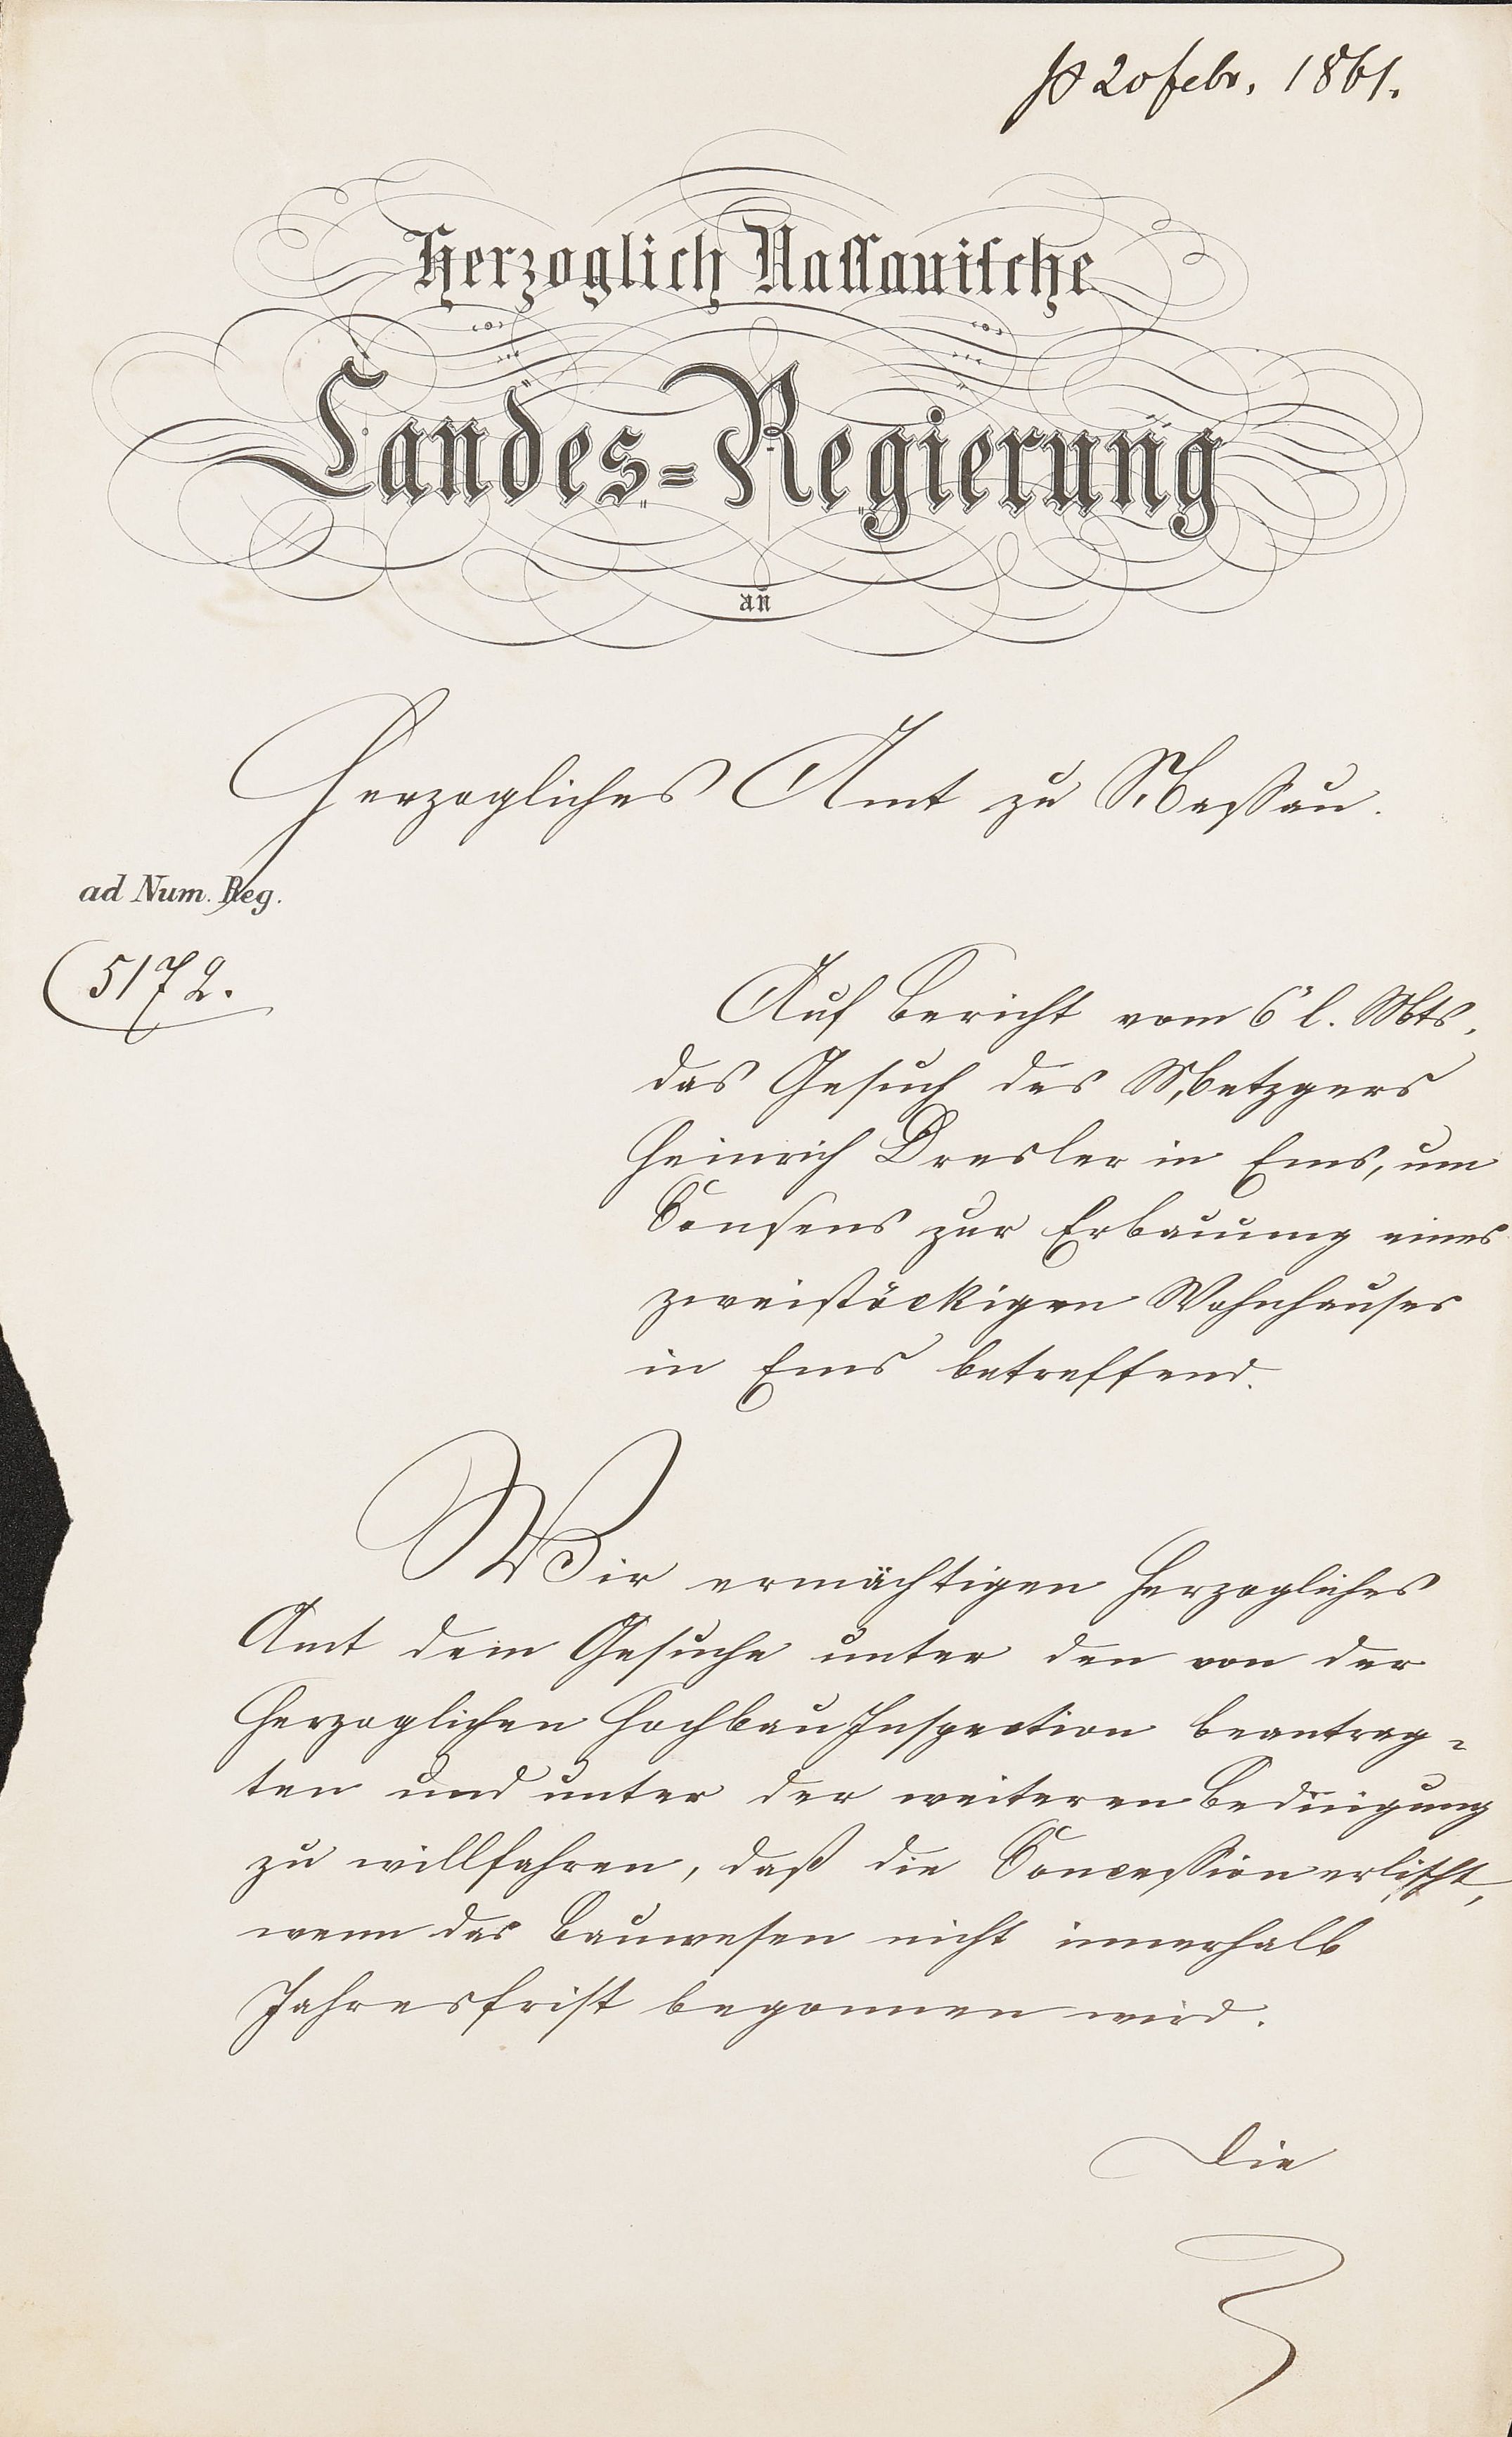 20 febr. 1861.
Herzoglich Nassauische
Landes-Regierung
an
Herzogliches Amt zu Nassau.
ad Num. Reg.
5172.
Auf Bericht vom 6" l. Mts.
das Gesuch des Metzgers
Heinrich Dresler in Ems, um
Consens zur Erbauung eines
zweistöckigen Wohnhauses
in Ems betreffend.
Wir ermächtigen Herzogliches
Amt dem Gesuche unter den von der
Herzoglichen Hochbau Inspection beantrag-
ten und unter der weiteren Bedingung
zu willfahren, daß die Concession erlischt,
wenn das Bauwesen nicht innerhalb
Jahresfrist begonnen wird.
Die